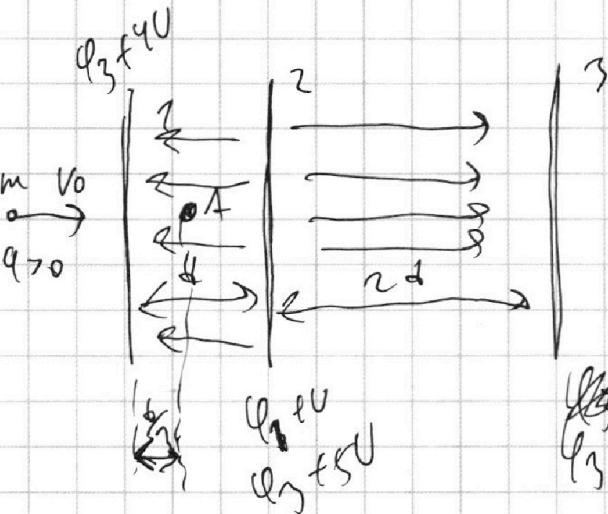 φ₃+4U
1 2 3
m V₀
q>0
A
d 2d
φ₁+U
φ₃+5U
φ₃